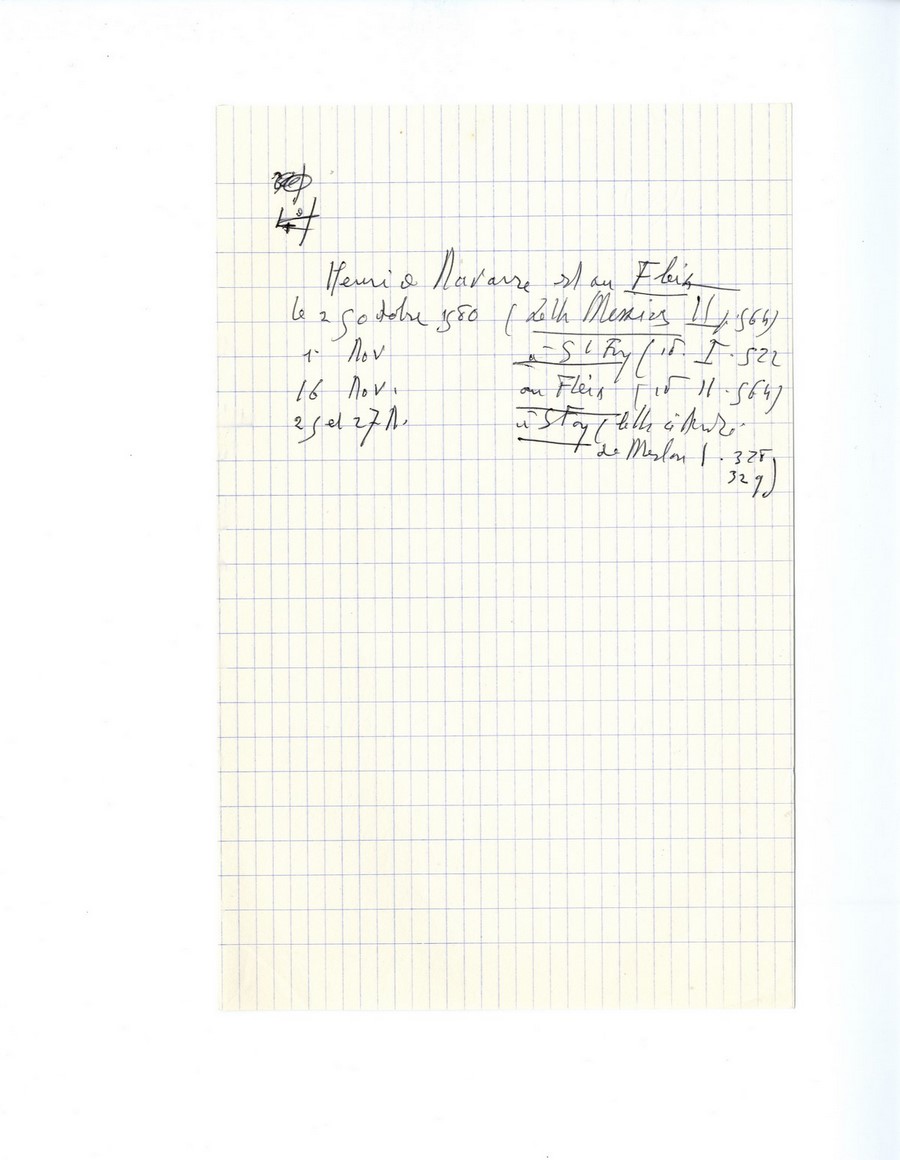 Henri de Navarre est au Fleix
le 25 octobre 1580 (Lettres Missives II, 564)
1er Nov à Ste Foy (ib. I. 522
16 Nov. au Fleix (ib II. 564)
25 et 27 N. à Ste Foy (lettres
de Meslon 1. 328
329)